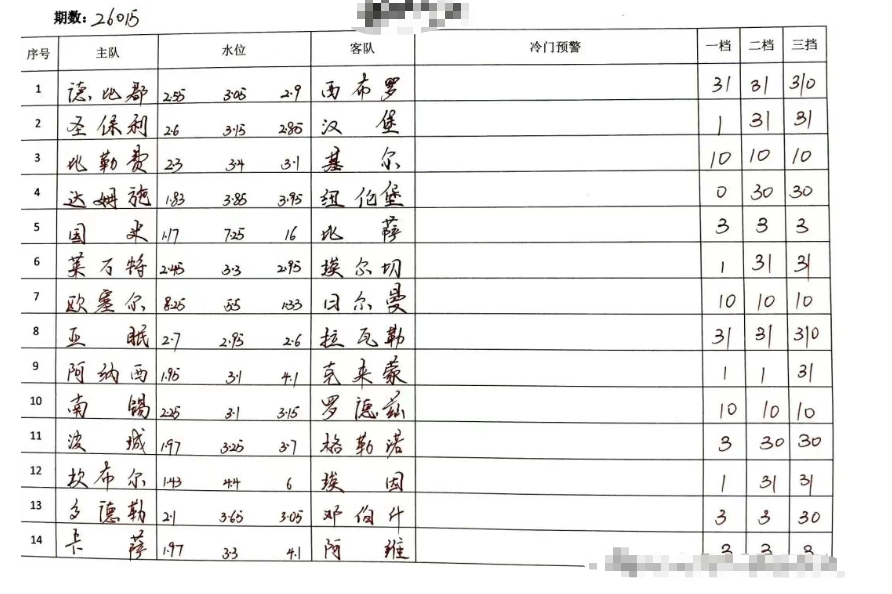 期数:26015
序号 主队 水位 客队 冷门预警 一档 二档 三挡
1 德比郡 2.55 3.05 2.9 西布罗 31 31 310
2 圣保利 2.6 3.15 2.85 汉堡 1 31 31
3 比勒费 2.3 3.4 3.1 基尔 10 10 10
4 达姆施 1.83 3.85 3.95 纽伯堡 0 30 30
5 国米 1.17 7.25 16 比萨 3 3 3
6 莱万特 2.45 3.3 2.95 埃尔切 1 31 31
7 欧塞尔 8.25 5.5 1.33 日尔曼 10 10 10
8 亚眠 2.7 2.95 2.6 拉瓦勒 31 31 310
9 阿纳西 1.95 3.1 4.1 克来蒙 1 1 31
10 南锡 2.25 3.1 3.15 罗德兹 10 10 10
11 波城 1.97 3.25 3.7 格勒诺 3 30 30
12 坎布尔 1.43 4.4 6 埃因 1 31 31
13 多德勒 2.1 3.65 3.05 邓伯什 3 3 30
14 卡萨 1.97 3.3 4.1 阿维 3 3 3